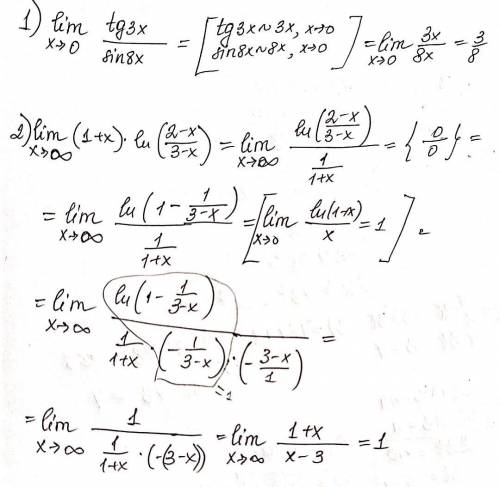 1) lim x→0 tg3x/sin8x = [tg3x~3x, x→0 sin8x~8x, x→0] = lim x→0 3x/8x = 3/8
2) lim x→∞ (1+x)·ln((2-x)/(3-x)) = lim x→∞ ln((2-x)/(3-x)) / (1/(1+x)) = {0/0} =
= lim x→∞ ln(1 - 1/(3-x)) / (1/(1+x)) = [lim x→0 ln(1-x)/x = 1] =
= lim x→∞ ln(1 - 1/(3-x)) / (1/(1+x) · (-1/(3-x)) · (-(3-x)/1)) =
=1
= lim x→∞ 1 / (1/(1+x) · (-(3-x))) = lim x→∞ (1+x)/(x-3) = 1